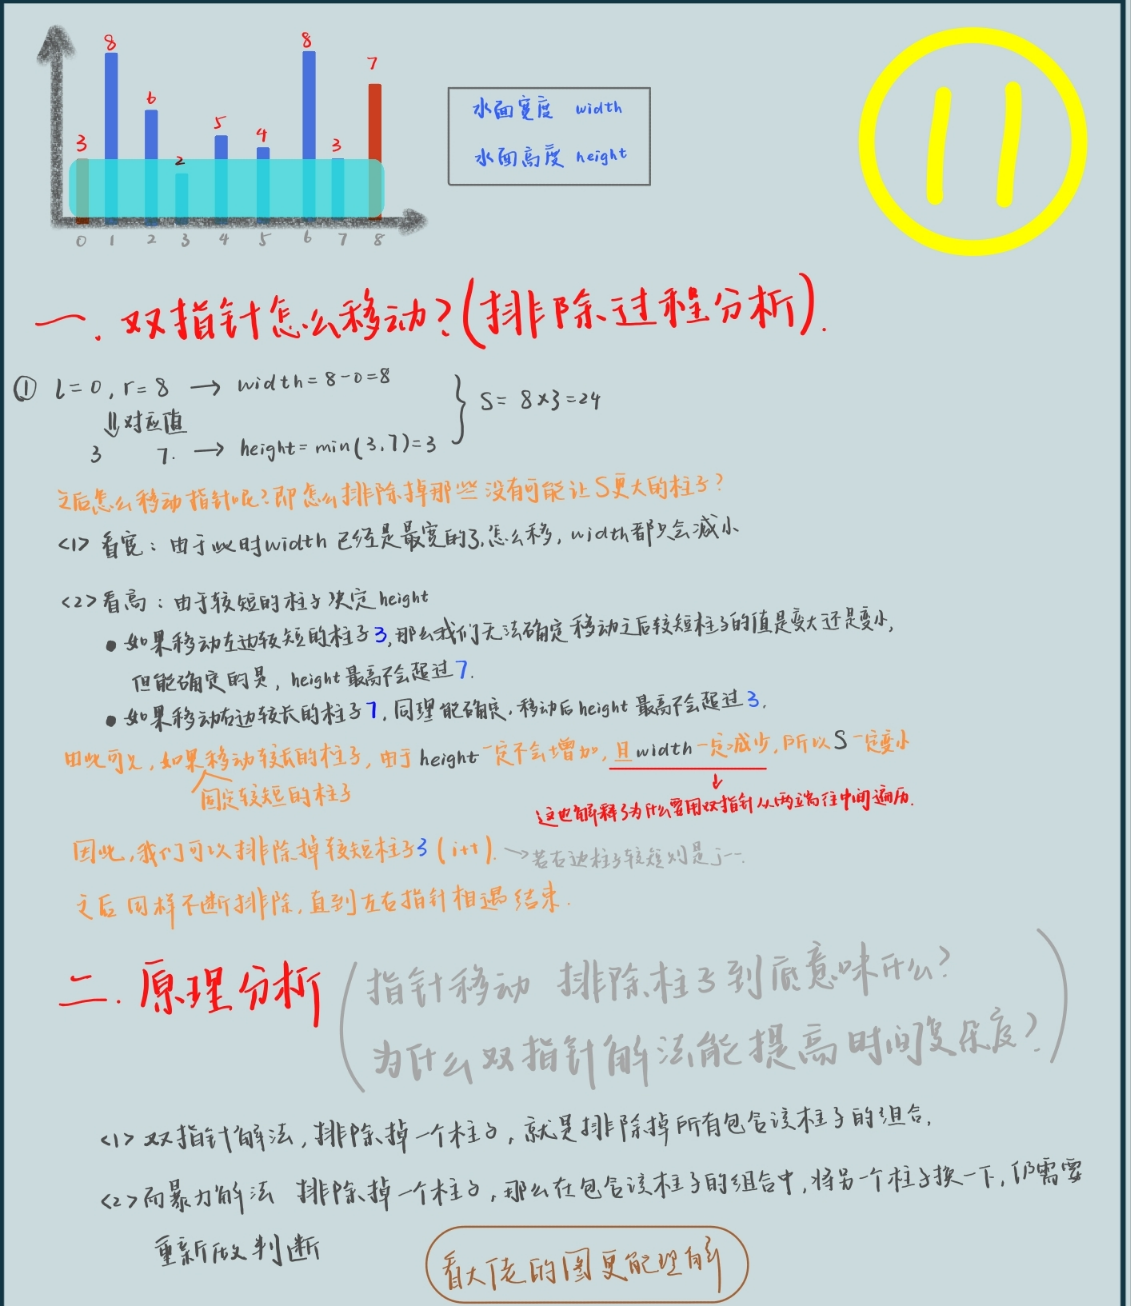 8
8
7
6
5
4
3
3
2
水面宽度 width
水面高度 height
11
0 1 2 3 4 5 6 7 8
一. 双指针怎么移动?(排除过程分析).
① l=0, r=8 → width=8-0=8
S=8×3=24
⇓对应值
3 7. → height=min(3,7)=3
之后怎么移动指针呢?即怎么排除掉那些没有可能让S更大的柱子?
<1> 看宽: 由于此时width已经是最宽的了,怎么移, width都只会减小
<2> 看高: 由于较短的柱子决定height
• 如果移动左边较短的柱子3,那么我们无法确定移动之后较短柱子的值是变大还是变小,
但能确定的是, height最高不会超过7.
• 如果移动右边较长的柱子7, 同理能确定, 移动后height最高不会超过3.
由此可见, 如果移动较长的柱子, 由于height一定不会增加, 且width一定减少, 所以S一定变小
固定较短的柱子
这也解释了为什么要用双指针从两端往中间遍历.
因此,我们可以排除掉较短柱子3 (i++). →若右边柱子较短则是j--.
之后同样不断排除,直到左右指针相遇结束.
二. 原理分析 (指针移动 排除柱子到底意味什么?
为什么双指针解法能提高时间复杂度?)
<1> 双指针解法, 排除掉一个柱子, 就是排除掉所有包含该柱子的组合.
<2> 而暴力解法 排除掉一个柱子, 那么在包含该柱子的组合中, 将另一个柱子换一下, 仍需要
重新做判断
看大佬的图更能理解